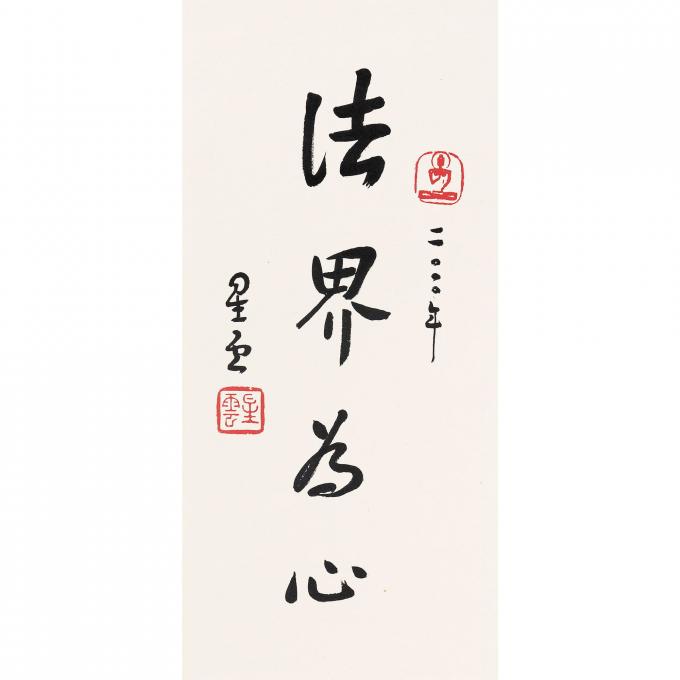 二〇〇〇年
法界為心
星云
星雲